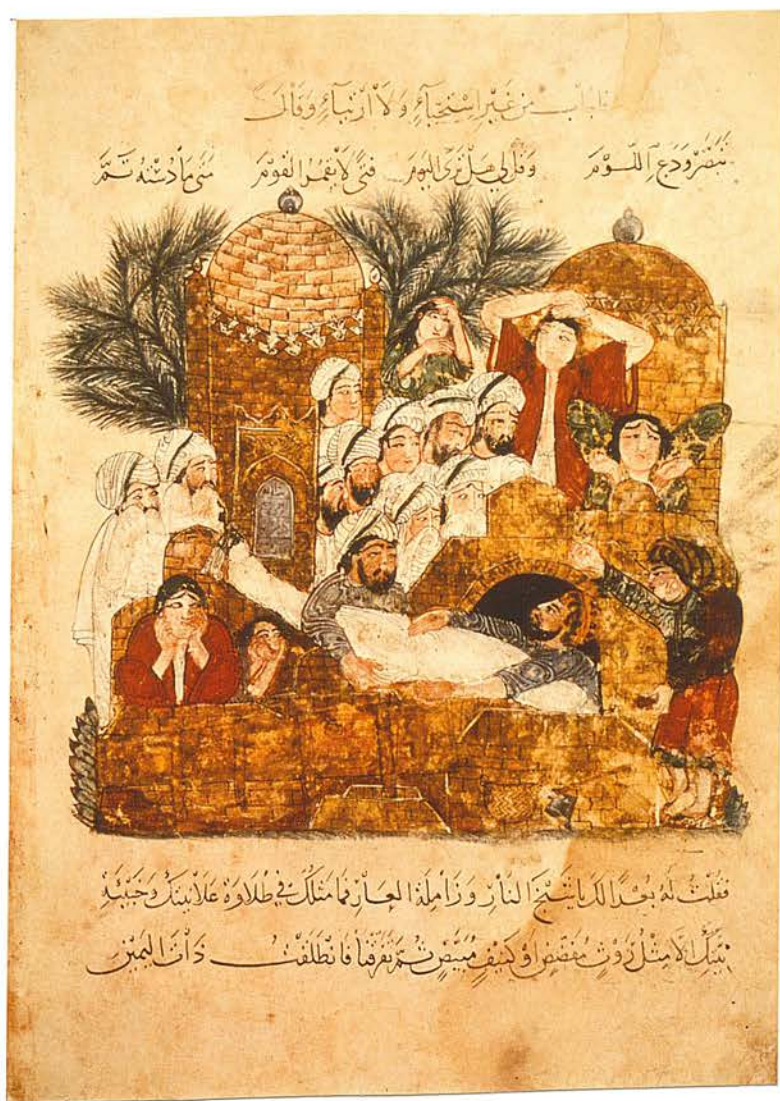 بالباب من غير استحياء ولا ارتياء وقال
تبصر ودع اللوم وقل لي هل ترى اليوم فتى لا يقمر القوم متى ما دسته تم
فقلت له بعدا لك يا شيخ النار وزاملة العار فما مثلك في طلاوة علانيتك وخبثة
نيتك الا مثل روث مفضض او كنيف مبيض ثم تفرقنا فانطلقت ذات اليمين